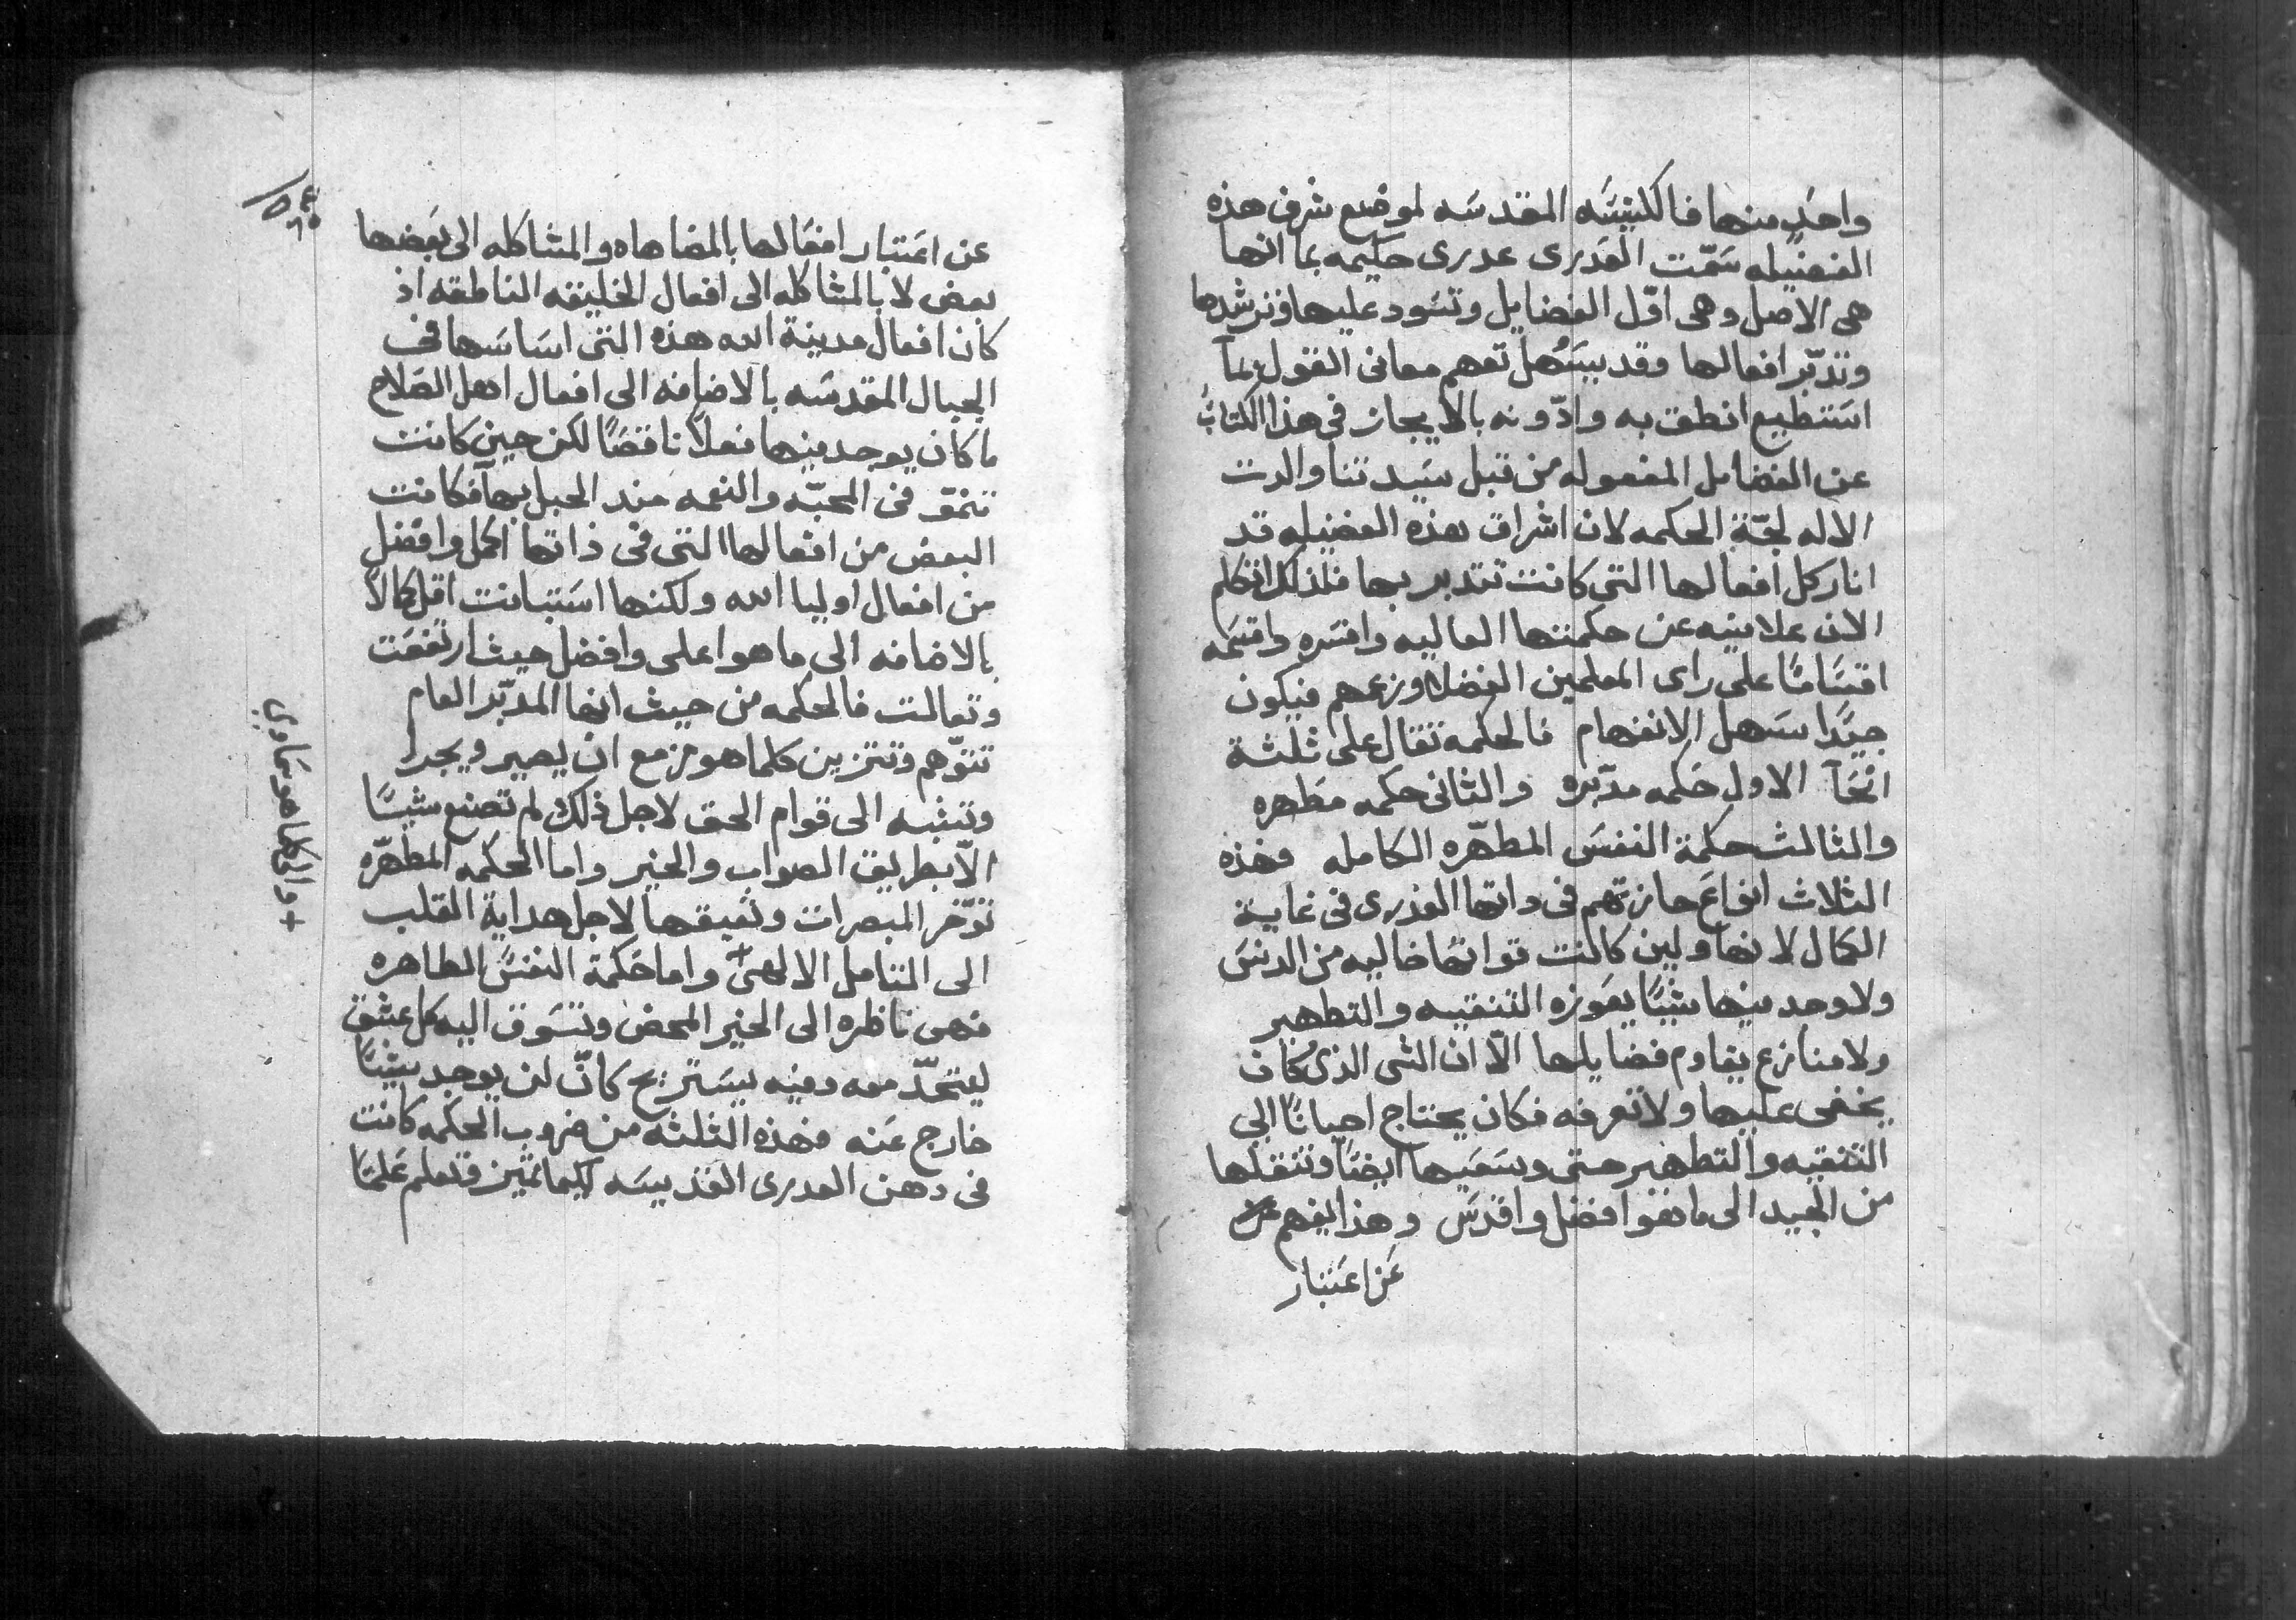 واحد منها فالكنيسه المقدسه لموضع شرف هذه
الفضيله سمّت العدرى عدرى حكيمه بما انها
هى الاصل وهى اوّل الفضايل وتسود عليها وترشدها
وتدبّر افعالها وقد يسهل تفهم معانى القول بما
استطيع انطق به وادّونه بالايجاز فى هذا الكتاب
عن الفضايل المفعوله من قبل سيدتنا والدت
الاله لجّة الحكمه لان اشراق هذه الفضيله قد
انار كل افعالها التى كانت تتدبر بها فلذلك اتكلم
الان علانيه عن حكمتها العاليه وافسره واقسمه
اقسامًا على راى المعلمين الفضلا وزعمهم فيكون
جيدًا سهل الانفهام فالحكمه تقال على ثلثة
انحآ الاول حكمه مدّبره والثانى حكمه مطهره
والثالث حكمة النفس المطهّره الكامله فهذه
الثلاث انواع حازتهم فى داتها العدرى فى غاية
الكمال لانها ولين كانت قواتها خاليه من الدنس
ولا وجد فيها شيًا يعوزه التنقيه والتطهير
ولا منازع يقاوم فضايلها الّا ان الشى الذى كان
يخفى عليها ولا تعرفه فكان يحتاج احيانًا الى
التنقيه والتطهير حتى ايضًا وتنقلها
من الجيد الى ما هو افضل واقدس وهذا يفهم عن
عن اعتبار
عن اعتبار افعالها بالمضاهاه والمشاكله الى بعضها
بعض لا بالمشاكله الى افعال الخليقه الناطقه اذ
كان افعال مدينة الله هذه التى اساسها فى
الجبال المقدسه بالاضافه الى افعال اهل الصلاح
ما كان يوجد فيها فعلًا ناقصًا لكن حين كانت
تنمو فى المحبّه والنعمه منذ الحبل بها فكانت
البعض من افعالها التى فى ذاتها اكمل وافضل
من افعال اوليا الله ولكنها استبانت اقل كمالًا
بالاضافه الى ما هو اعلى وافضل حيث ارتفعت
وتعالت فالحكمه من حيث انها المدبّر العام
تتوّهم وتتزين كلما هو مزمع ان يصير ويجرا
وتنتبه الى قوام الحق لاجل ذلك لم تصنع شيًا
الّا بطريق الصواب والخير واما الحكمه المطهّره
توّخر المبصرات وتعيقها لاجل هداية القلب
الى التامل الالهى + واما حكمة النفس الطاهره
فهى ناظره الى الخير المحض وتسوق اليه كل عشق
ليتحّد معه وفيه يستريح كانّ لن يوجد شيًا
خارج عنه فهذه الثلثه من ضروب الحكمه كانت
فى دهن العدرى القديسه كيما تميّز وتعلم علمًا
+ والى كلما هو سماوي